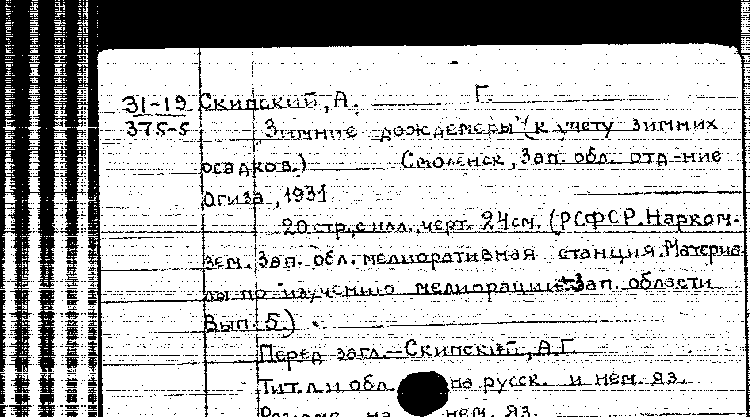 31-19 Скипский, А. Г.
375-5 Зимние дождемеры (к учету зимних
осадков.) Смоленск, Зап. обл. отд-ние
Огиза, 1931
20 стр. с илл., черт. 24см. (РСФСР. Нарком-
зем. Зап. обл. мелиоративная станция. Материа-
лы по изучению мелиорации Зап. области
Вып. 5.)
Перед загл.-Скипский, А.Г.
Тит.л. и обл. на русск. и нем. яз.
Резюме на нем. яз.